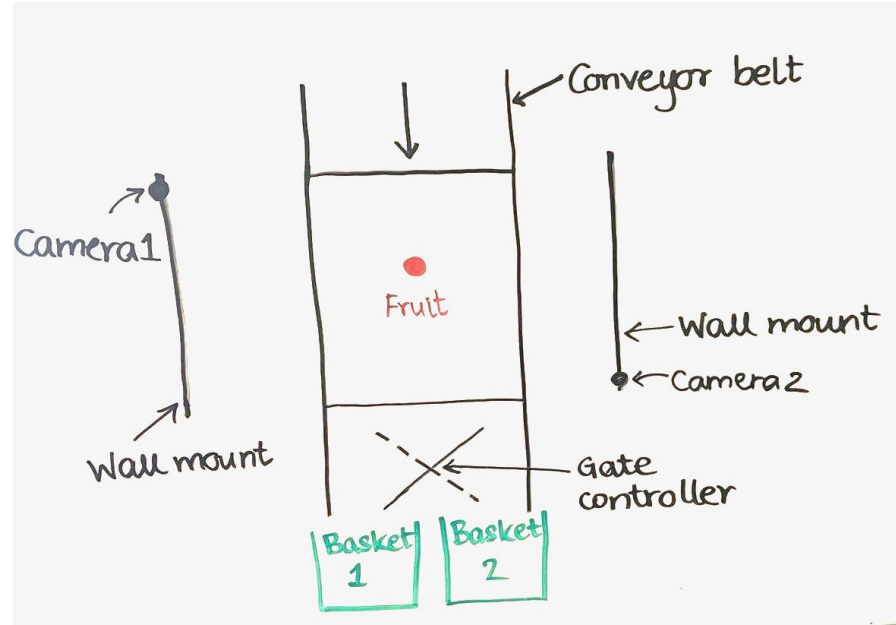 Conveyor belt
Camera1
Fruit
Wall mount
Camera2
Wall mount
Gate
controller
Basket
1
Basket
2